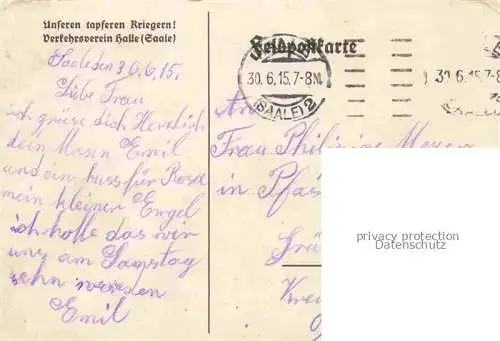 Unseren tapferen Kriegern!
Verkehrsverein Halle (Saale)
Feldpostkarte
30.6.15.7-8N.
(SAALE) 2
30.6.15.7-
Saale den 30.6.15.
Liebe Frau
ich grüse dich Herzlich
dein Mann Emil
und ein kuss für Rosa
mein kleiner Engel
ich hoffe das wir
uns am Samstag
sehn werden
Emil
An
Frau Philipine Meyer
in Pfas
Grä
Krei
privacy protection
Datenschutz